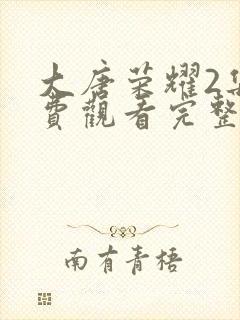 大唐荣耀2集
費觀看完整
南有青梧